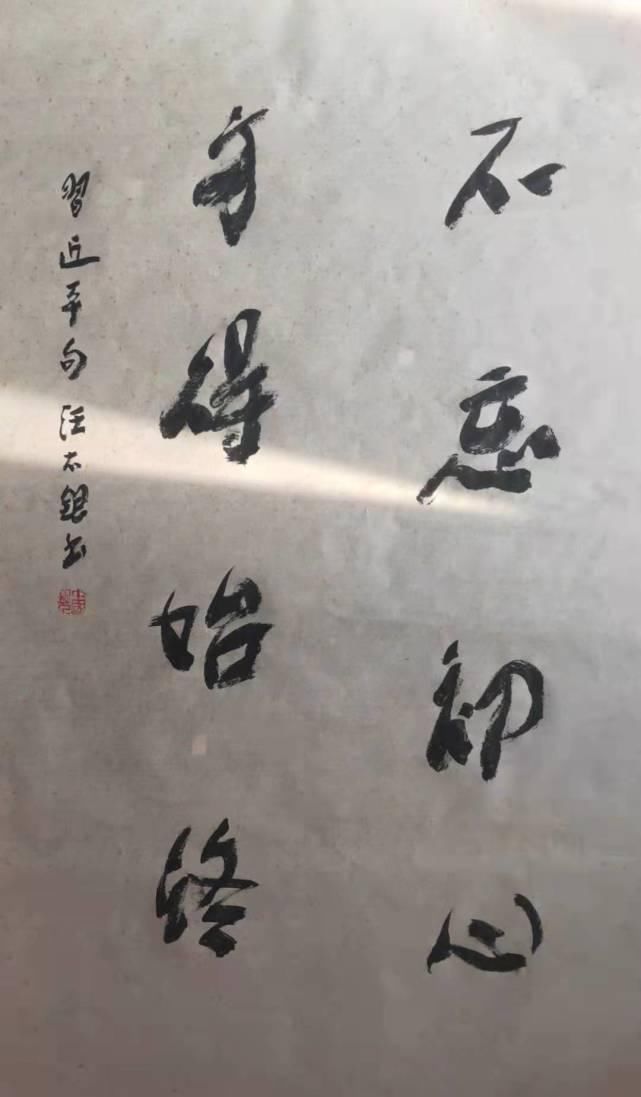 不忘初心
方得始终
習近平句 汪太銀书